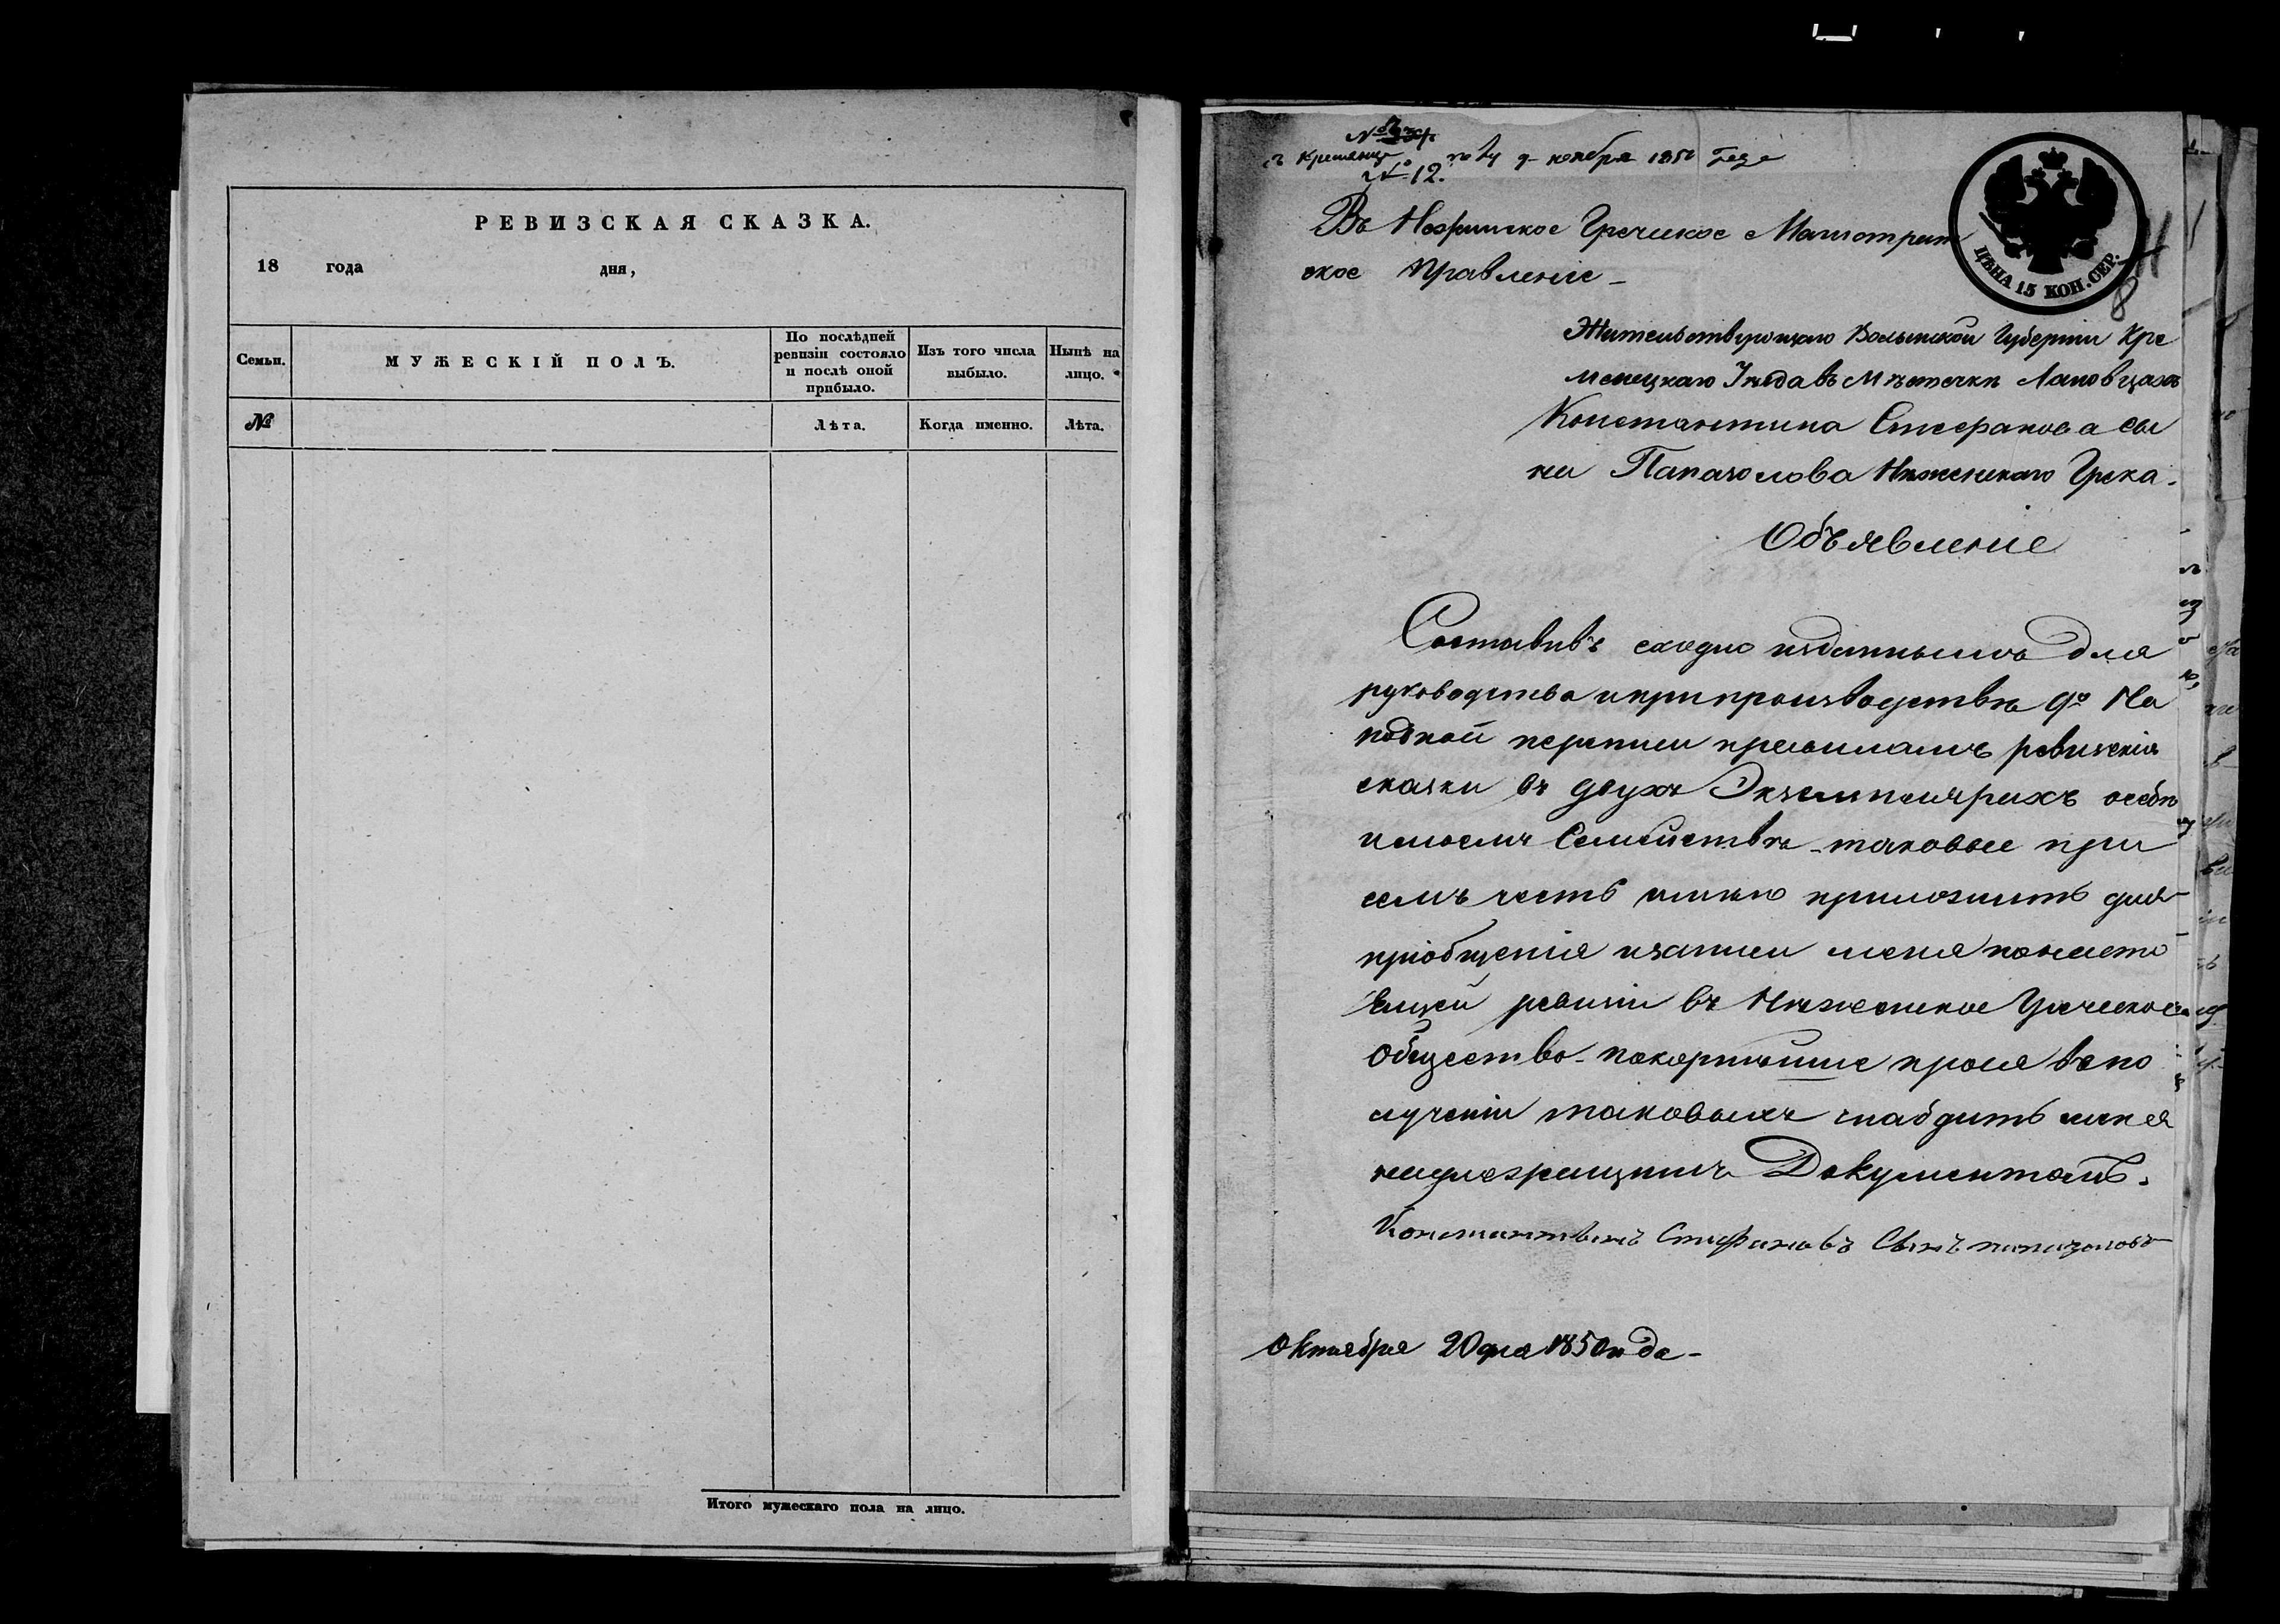 РЕВИЗСКАЯ СКАЗКА.
18 года дня,
Семьи.
МУЖЕСКІЙ ПОЛЪ.
По послѣдней
ревизіи состояло
и послѣ оной
прибыло.
Изъ того числа
выбыло.
Нынѣ на
лицо.
№
Лѣта.
Когда именно.
Лѣта.
Итого мужескаго пола на лицо.
ноября 1850 года
№ 12.
Въ Нѣжинское Греческое Магистрат
ское Правленіе
ЦѢНА 15 КОП. СЕР.
8
Жительствующаго Волынской Губерніи Кре
менецкаго Уѣзда въ Мѣстечкѣ Лановцахъ
Константина Стефанова сы
на Папазолова Нѣжинскаго Грека.
Объявленіе
Составивъ сходно изданнымъ для
руководства при производствѣ 9й На
родной переписи правиламъ ревизскія
сказки въ двухъ Экземплярахъ о себѣ
и моемъ Семействѣ таковые при
семъ честь имѣю приложить для
пріобщенія и записи меня по насто
ящей ревизіи въ Нѣжинское Греческое
Общество покорнѣйше прося въ по
лученіи таковыхъ снабдить меня
надлежащимъ Документомъ.
Константинъ Стефановъ Сынъ папазоловъ
Октября 20 дня 1850 года